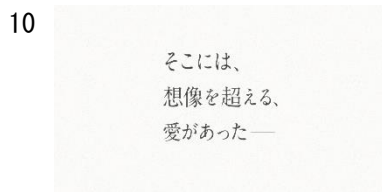 10
そこには、
想像を超える、
愛があった──